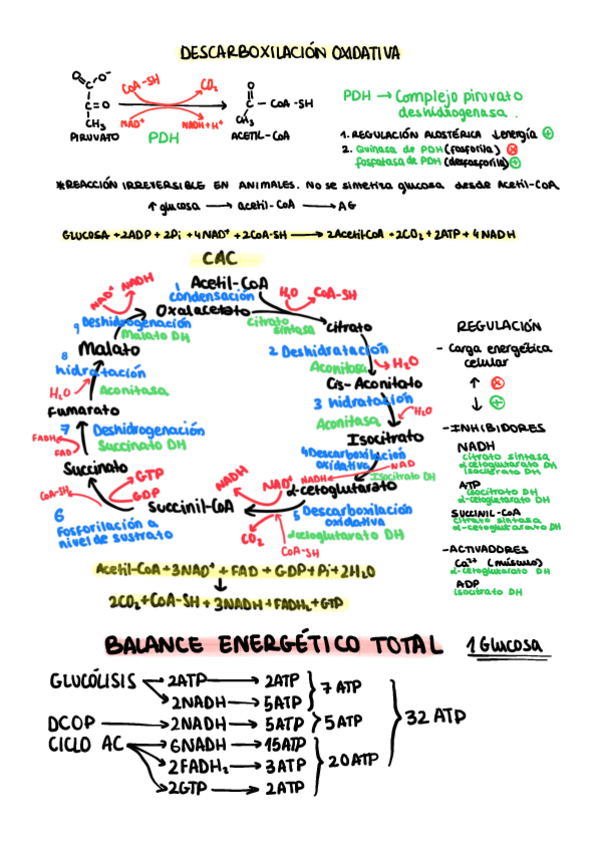 DESCARBOXILACIÓN OXIDATIVA
O
O-
C
C=O
CH₃
PIRUVATO
CoA-SH
CO₂
NAD⁺
NADH+H⁺
PDH
O
C - CoA-SH
CH₃
ACETIL-CoA
PDH → Complejo piruvato
deshidrogenasa.
1. REGULACIÓN ALOSTÉRICA ↓energía ⊕
2. Quinasa de PDH (fosforila) ⊗
fosfatasa de PDH (desfosforila) ⊕
*REACCIÓN IRREVERSIBLE EN ANIMALES. No se sintetiza glucosa desde Acetil-CoA
↑ glucosa → acetil-CoA → AG
GLUCOSA + 2ADP + 2Pi + 4NAD⁺ + 2CoA-SH → 2Acetil-CoA + 2CO₂ + 2ATP + 4NADH
CAC
Acetil-CoA
1
condensación
Oxalacetato
H₂O
CoA-SH
citrato
sintasa
citrato
2 Deshidratación
Aconitasa
H₂O
Cis-Aconitato
3 hidratación
Aconitasa
H₂O
Isocitrato
4 Descarboxilación
oxidativa
NAD
NADH
Isocitrato DH
α-cetoglutarato
5 Descarboxilación
oxidativa
α-cetoglutarato DH
NAD⁺
NADH
CO₂
CoA-SH
Succinil-CoA
6
Fosforilación a
nivel de sustrato
GTP
GDP
CoA-SH
Succinato
7 Deshidrogenación
Succinato DH
FADH₂
FAD
Fumarato
8
hidratación
Aconitasa
H₂O
Malato
9 Deshidrogenación
Malato DH
NAD⁺
NADH
REGULACIÓN
- Carga energética
celular
↑ ⊗
↓ ⊕
- INHIBIDORES
NADH
citrato sintasa
α-cetoglutarato DH
isocitrato DH
ATP
isocitrato DH
α-cetoglutarato DH
SUCCINIL-CoA
citrato sintasa
α-cetoglutarato DH
- ACTIVADORES
Ca²⁺ (músculo)
α-cetoglutarato DH
ADP
isocitrato DH
Acetil-CoA + 3NAD⁺ + FAD + GDP + Pi + 2H₂O
↓
2CO₂ + CoA-SH + 3NADH + FADH₂ + GTP
BALANCE ENERGÉTICO TOTAL 1 Glucosa
GLUCÓLISIS → 2ATP → 2ATP
→ 2NADH → 5ATP
} 7 ATP
DCOP → 2NADH → 5ATP } 5 ATP
CICLO AC → 6NADH → 15ATP
→ 2FADH₂ → 3ATP
→ 2GTP → 2ATP
} 20ATP
} 32 ATP